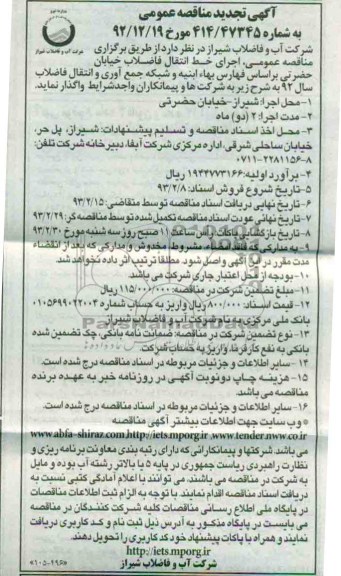 آگهی تجدید مناقصه عمومی
به شماره ۴۱۴/۴۷۳۴۵ مورخ ۹۲/۱۲/۱۹
شرکت آب و فاضلاب شیراز
شرکت آب و فاضلاب شیراز در نظر دارد از طریق برگزاری
مناقصه عمومی، اجرای خط انتقال فاضلاب خیابان
حضرتی براساس فهارس بهاء ابنیه و شبکه جمع آوری و انتقال فاضلاب
سال ۹۲ به شرح زیر به شرکت ها و پیمانکاران واجد شرایط واگذار نماید.
۱-محل اجرا: شیراز-خیابان حضرتی
۲-مدت اجرا: ۲ (دو) ماه
۳-محل اخذ اسناد مناقصه و تسلیم پیشنهادات: شیراز، پل حر،
خیابان ساحلی شرقی، اداره مرکزی شرکت آبفا، دبیرخانه شرکت تلفن:
۸-۲۲۸۱۱۵۶-۰۷۱۱
۴-برآورد اولیه: ۱۹۴۴۷۷۳۱۶۶ ریال
۵-تاریخ شروع فروش اسناد: ۹۳/۲/۸
۶-تاریخ نهایی دریافت اسناد مناقصه توسط متقاضی: ۹۳/۲/۱۵
۷-تاریخ نهائی عودت اسناد مناقصه تکمیل شده توسط مناقصه گر: ۹۳/۲/۲۹
۸-تاریخ بازگشایی پاکات راس ساعت ۱۱ صبح روز سه شنبه مورخ ۹۳/۲/۳۰
۹-به مدارکی که فاقد امضاء، مشروط، مخدوش و مدارکی که بعد از انقضاء
مدت مقرر در این آگهی واصل شود، مطلقا ترتیب اثر داده نخواهد شد.
۱۰-بودجه از محل اعتبار جاری شرکت می باشد.
۱۱-مبلغ تضمین شرکت در مناقصه: ۱۱۵/۰۰۰/۰۰۰ ریال
۱۲-قیمت اسناد: ۸۰۰/۰۰۰ ریال واریز به حساب شماره ۰۱۰۵۶۹۹۰۲۲۰۰۳
بانک ملی مرکزی به نام شرکت آب و فاضلاب شیراز
۱۳-نوع تضمین شرکت در مناقصه: ضمانت نامه بانکی، چک تضمین شده
بانکی به نفع کارفرما، واریز به حساب شرکت
۱۴-سایر اطلاعات و جزئیات مربوطه در اسناد مناقصه درج شده است.
۱۵-هزینه چاپ دو نوبت آگهی در روزنامه خبر به عهده برنده
مناقصه می باشد.
۱۶-سایر اطلاعات و جزئیات مربوطه در اسناد مناقصه درج شده است.
*وب سایت جهت اطلاعات بیشتر آگهی مناقصه
http://iets.mporg.ir، www.tender.nww.co.ir، www.abfa-shiraz.com
می باشد. شرکتها و پیمانکارانی که دارای رتبه بندی معاونت برنامه ریزی و
نظارت راهبردی ریاست جمهوری در پایه ۵ یا بالاتر رشته آب بوده و مایل
به شرکت در مناقصه می باشند، می توانند با اعلام آمادگی کتبی نسبت به
دریافت اسناد مناقصه اقدام نمایند. با توجه به الزام ثبت اطلاعات مناقصات
در پایگاه ملی اطلاع رسانی مناقصات کلیه شرکت کنندگان در مناقصه
می بایست در پایگاه مذکور به آدرس ذیل ثبت نام و کد کاربری دریافت
نمایند و همراه با پاکات پیشنهاد خود کد کاربری را تحویل دهند.
http://iets.mporg.ir
شرکت آب و فاضلاب شیراز
«۶۰۵-۲۹۶»